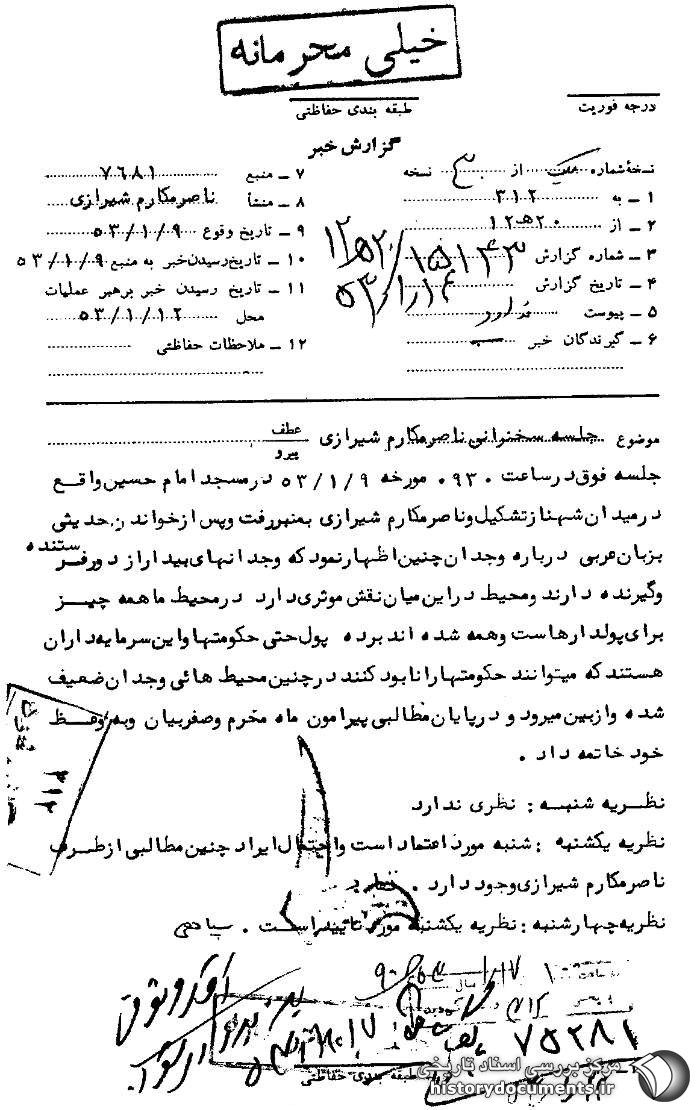 خیلی محرمانه
درجه فوریت
طبقه بندی حفاظتی
گزارش خبر
نسخهٔ شماره یک از نسخه
۱ ـ به ۳۱۲
۲ ـ از ۲۰هـ۱۲
۳ ـ شماره گزارش ۱۵۱۴۳/۱۲هـ۲۰
۴ ـ تاریخ گزارش ۵۳/۱/۱۴
۵ ـ پیوست ندارد
۶ ـ گیرندگان خبر
۷ ـ منبع ۷۶۸۱
۸ ـ منشأ ناصر مکارم شیرازی
۹ ـ تاریخ وقوع ۵۳/۱/۹
۱۰ ـ تاریخ رسیدن خبر به منبع ۵۳/۱/۹
۱۱ ـ تاریخ رسیدن خبر برهبر عملیات
محل ۵۳/۱/۱۲
۱۲ ـ ملاحظات حفاظتی
موضوع جلسه سخنرانی ناصر مکارم شیرازی عطف
پیرو
جلسه فوق در ساعت ۰۹۳۰ مورخه ۵۳/۱/۹ در مسجد امام حسین واقع
در میدان شهناز تشکیل و ناصر مکارم شیرازی بمنبر رفت و پس از خواندن حدیثی
بزبان عربی درباره وجدان چنین اظهار نمود که وجدانهای بیدار از دو فرستنده
وگیرنده دارند و محیط در این میان نقش موثری دارد در محیط ما همه چیز
برای پولدارهاست و همه شده اند برده پول حتی حکومتها و این سرمایه داران
هستند که میتوانند حکومتها را نابود کنند در چنین محیط هائی وجدان ضعیف
شده و ازبین میرود و در پایان مطالبی پیرامون ماه محرم و صفر بیان و به وعظ
خود خاتمه داد .
نظریه شنبه : نظری ندارد
نظریه یکشنبه : شنبه مورد اعتماد است و احتمال ایراد چنین مطالبی از طرف
ناصر مکارم شیرازی وجود دارد .
نظریه چهارشنبه : نظریه یکشنبه مورد تائید است .
۳۱۲
۷۵۲۸۱
طبقه بندی حفاظتی
مرکز بررسی اسناد تاریخی
historydocuments.ir